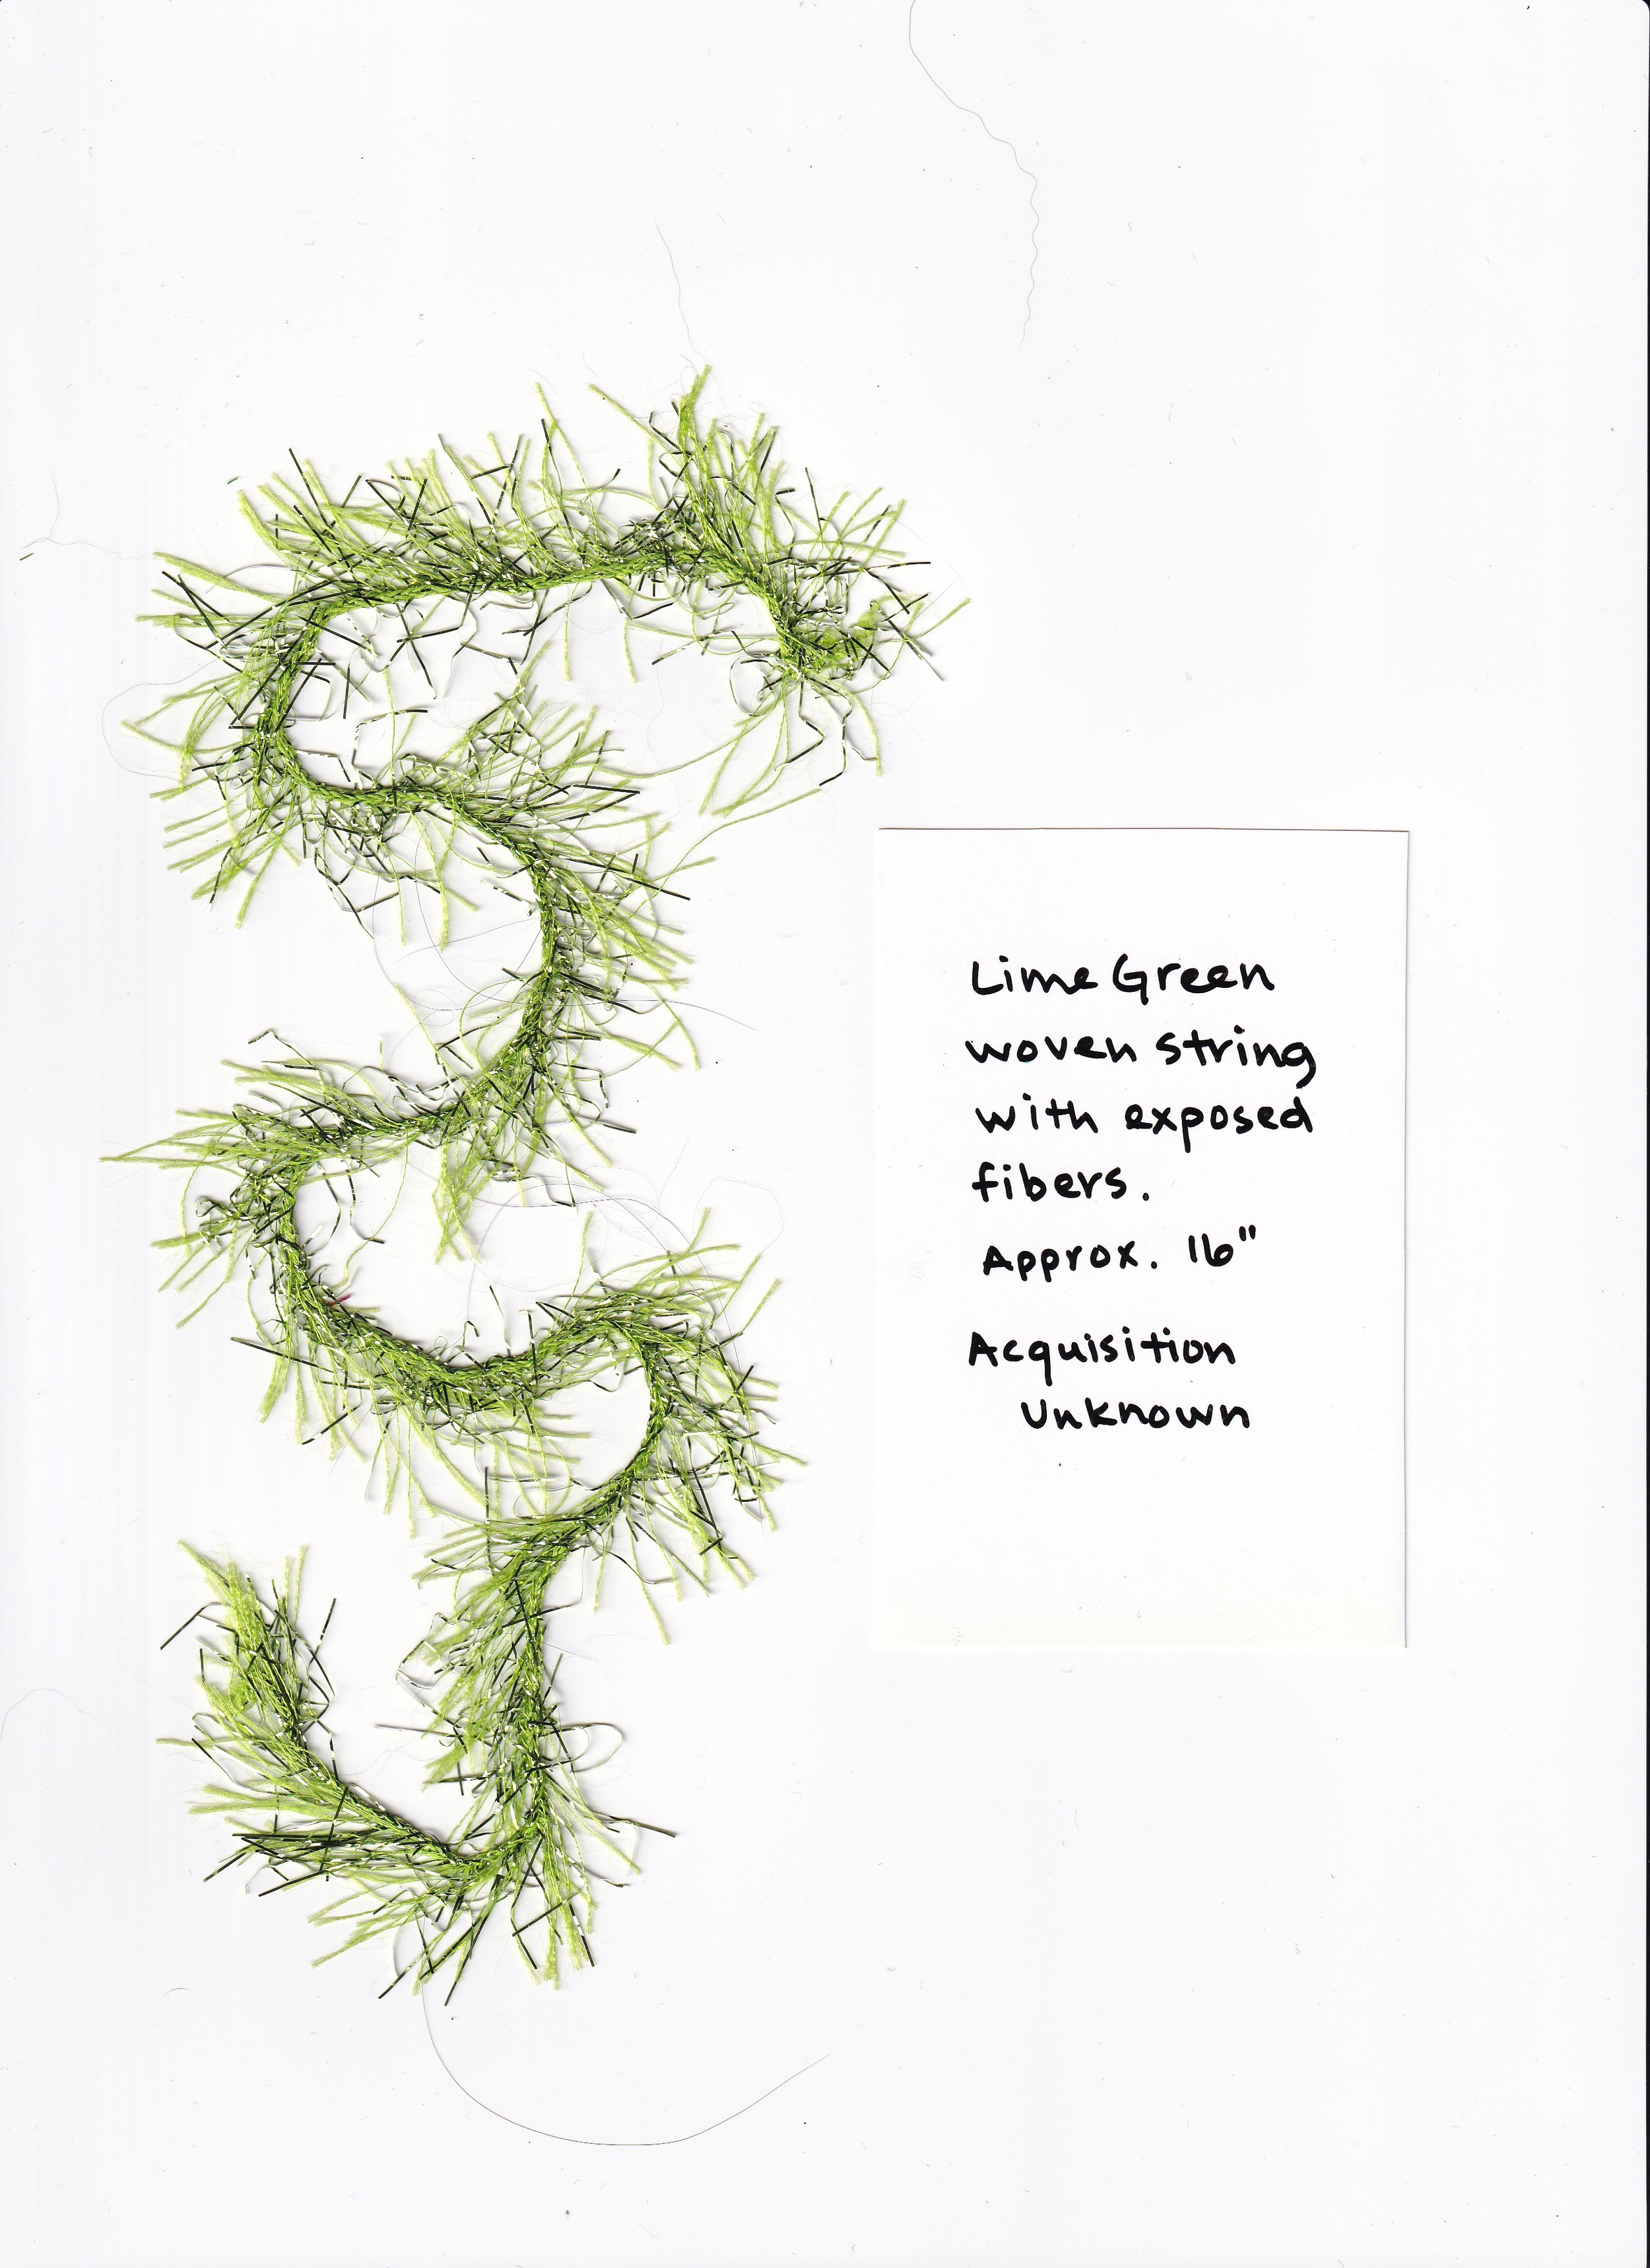 Lime Green
woven string
with exposed
fibers.
Approx. 16"
Acquisition
Unknown